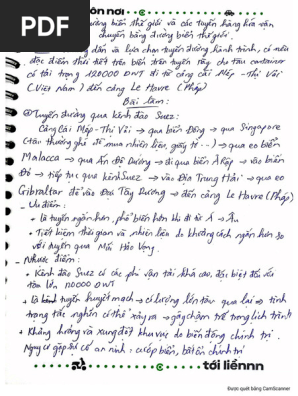 PDF
ôn nơi
đường biển thế giới và các tuyến hàng hóa vận
chuyển bằng đường biển thế giới.
dẫn và lựa chọn tuyến đường hành trình, có nêu
đặc điểm thời tiết trên biển trên tuyến này cho tàu container
có tải trọng 120000 DWT đi từ cảng Cái Mép - Thị Vải
(Việt Nam) đến cảng Le Havre (Pháp)
Bài làm:
Tuyến đường qua kênh đào Suez:
Cảng Cái Mép - Thị Vải → qua biển Đông → qua Singapore
(tàu thường ghé để mua nhiên liệu, giấy tờ...) → qua eo biển
Malacca → qua Ấn Độ Dương → đi qua biển Ả Rập → vào biển
Đỏ → tiếp tục qua kênh Suez → vào Địa Trung Hải → qua eo
Gibraltar để vào Đại Tây Dương → đến cảng Le Havre (Pháp)
- Ưu điểm:
+ là tuyến ngắn hơn, phổ biến hơn khi đi từ Á → Âu
+ Tiết kiệm thời gian và nhiên liệu do khoảng cách ngắn hơn so
với tuyến qua Mũi Hảo Vọng.
- Nhược điểm:
+ Kênh đào Suez có các phí vận tải khá cao, đặc biệt đối với
tàu lớn 120000 DWT
+ là tuyến huyết mạch → có lượng lớn tàu qua lại → tình
trạng tắc nghẽn có thể xảy ra → gây chậm trễ trong lịch trình
+ Khủng hoảng và xung đột khu vực do biến động chính trị.
Nguy cơ gặp sự cố an ninh: cướp biển, bất ổn chính trị
tới liênnn
Được quét bằng CamScanner